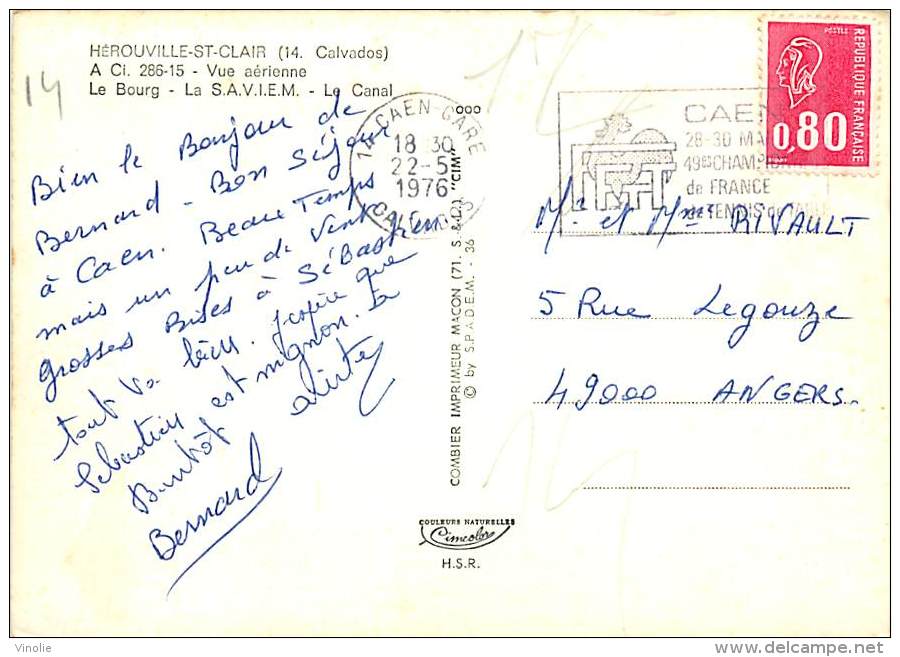 HÉROUVILLE-ST-CLAIR (14. Calvados)
A Ci. 286-15 - Vue aérienne
Le Bourg - La S.A.V.I.E.M. - Le Canal
14
Bien le Bonjour de
Bernard - Bon Séjour
à Caen. Beau Temps
mais un peu de Vent
Grosses Bises à Sébastien
tout va bien. J'espère que
Sébastien est mignon. à
Bientôt
Bernard
COMBIER IMPRIMEUR MACON (71. S.&L.) "CIM"
© by S.P.A.D.E.M. - 36
COULEURS NATURELLES
Cimcolor
H.S.R.
14 CAEN-GARE
18 30
22-5
1976
CALVADOS
CAEN
28-30 MA
49es CHAMPI
de FRANCE
de TENNIS de TABLE
REPUBLIQUE FRANÇAISE
POSTES
0,80
Mr et Mme RIVAULT
5 Rue Legouze
49000 ANGERS.
Vinolie
delcampe.net